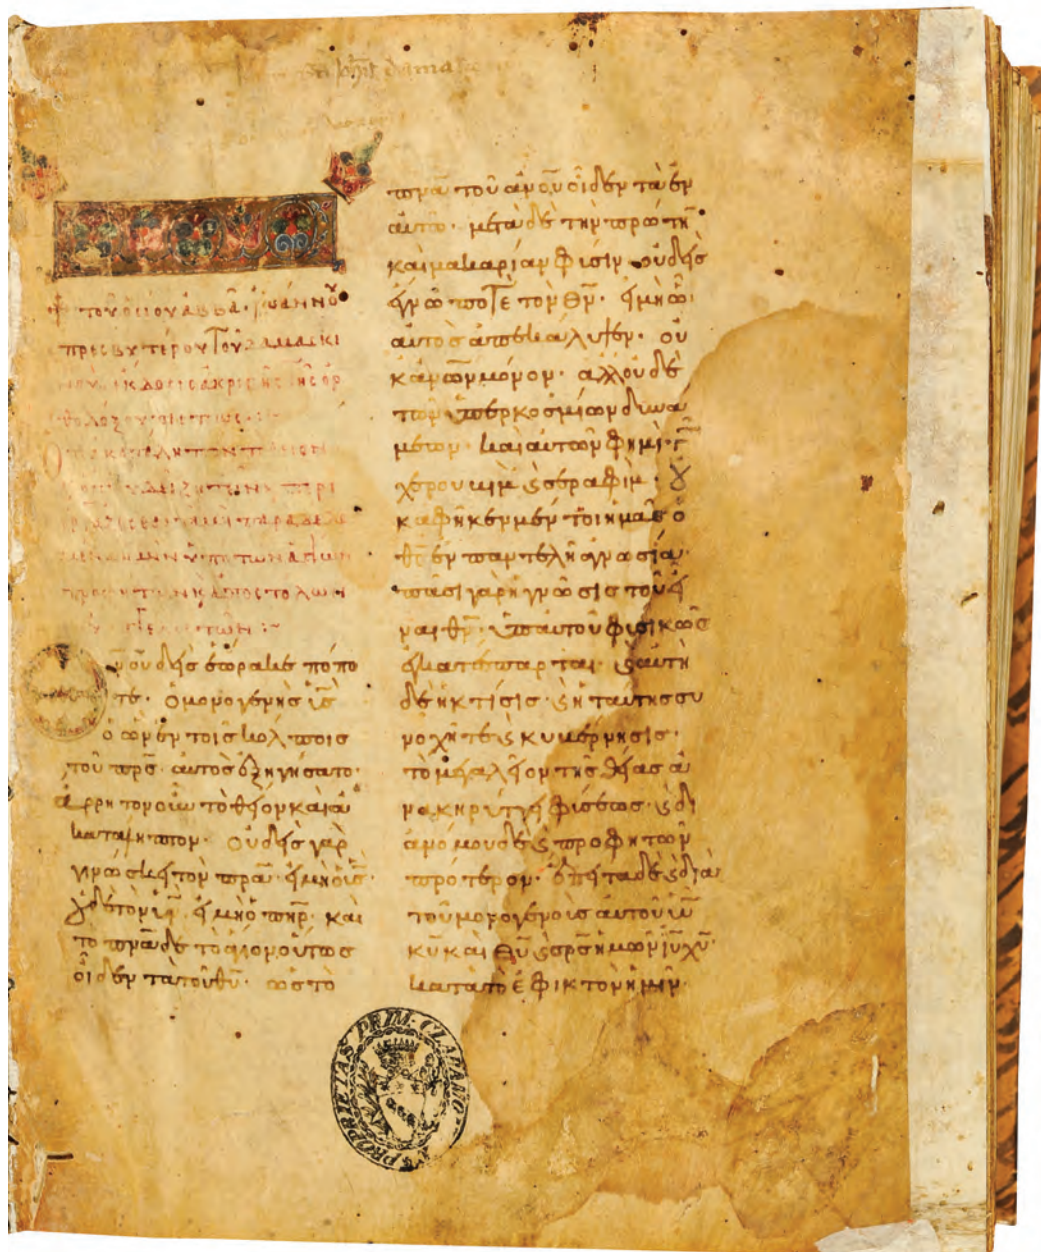 τοῦ ὁσίου ἀββᾶ· ἰωάννου
πρεσβυτέρου τοῦ δαμασκι
νοῦ ἔκδοσις ἀκριβὴς τῆς ὀρ
θοδόξου πίστεως :
ὅτι ἀκατάληπτον τὸ θεῖον
περι
παραδεδο
μένα ἡμῖν ὑπὸ τῶν ἁγίων
προφητῶν κ(αὶ) ἀποστόλων
εὐαγγελιστῶν :
οὐδεὶς ἑώρακε πόπο
τε. ὁ μονογενὴς υἱς
ὁ ὢν ἐν τοῖς κόλποις
τοῦ πρς. αὐτὸς ἐξηγήσατο·
ἄρρητον οὖν τὸ θεῖον καὶ ἀ
κατάληπτον. οὐδεὶς γὰρ
γινώσκει τὸν πρα. εἰ μὴ ὁ ις.
οὐδὲ τὸν ιν. εἰ μὴ ὁ πηρ. καὶ
το πνα δὲ τὸ ἅγιον οὕτως
οἶδεν τὰ τοῦ θυ. ὡς τὸ
πνα τοῦ ανου οἶδεν τὰ ἐν
αὐτῶ· μετὰ δὲ τὴν πρώτην
καὶ μακαρίαν φύσιν οὐδεὶς
ἔγνω ποτὲ τὸν θν. εἰ μὴ ᾧ
αὐτὸς ἀπεκάλυψεν. οὐ
κ ανων μόνον. ἀλλ οὐδὲ
τῶν ὑπερκοσμίων δυνα
μέων. καὶ αὐτῶν φημὶ τῶν
χερουβὶμ ϗ σεραφίμ. οὐ
κ ἀφῆκεν μέν τοι ἡμᾶς ὁ
θς ἐν παντελῆ ἀγνωσία·
πᾶσι γὰρ ἡ γνῶσις τοῦ εἶ
ναι θν. ὑπ αὐτοῦ φυσικῶς
ἐγκατέσπαρται. ϗ αὐτὴ
δὲ ἡ κτίσις. ϗ ἡ ταύτης συ
νοχή τε ϗ κυβέρνησις.
τὸ μεγαλεῖον τῆς θείας ἀ
νακηρύττει φύσεως. ϗ δι
ὰ νόμου δὲ ϗ προφητῶν
πρότερον. ἔπειτα δὲ ϗ διὰ
τοῦ μονογενοῦς αὐτοῦ υἱῦ
κυ καὶ θυ ϗ σρς ἡμῶν ιυ χυ.
κατὰ τὸ ἐφικτὸν ἡμῖν.
PROPRIETAS PRIM. CLAPANO